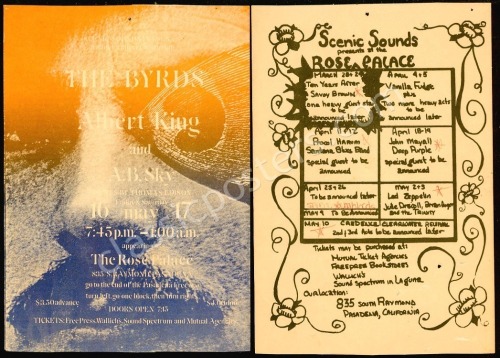 THE BYRDS
Albert King
and
A.B. Sky
16 17
7:45 p.m. - 1:00 a.m.
The Rose Palace
835 S. RAYMOND PASADENA
go to the end of the Pasadena Freeway
turn left, go one block, then turn right
$3.50 advance
DOORS OPEN 7:15
TICKETS: Free Press, Wallichs, Sound Spectrum and Mutual Agencies
Scenic Sounds
presents at the
ROSE PALACE
MARCH 28 +
Ten Years After
Savoy Brown
one heavy guest star
to be
announced later
APRIL 4+5
Vanilla Fudge
plus
Two more heavy acts
to be
announced later
April 11+12
Procol Harum
Santana Blues Band
special guest to be
announced
April 18-19
John Mayall
Deep Purple
special guest to be
announced
April 25+26
To be announced later
MAY 9 To Be Announced
MAY 2+3
Led Zeppelin
Julie Driscoll, Brian Auger
and the Trinity
MAY 10 CREDENCE CLEARWATER REVIVAL
2nd + 3rd Acts to be announced later
Tickets may be purchased at:
MUTUAL TICKET AGENCIES
FREEPRESS BOOKSTORES
WALLICHS
Sound Spectrum in Laguna
Our location:
835 SOUTH RAYMOND
PASADENA, CALIFORNIA